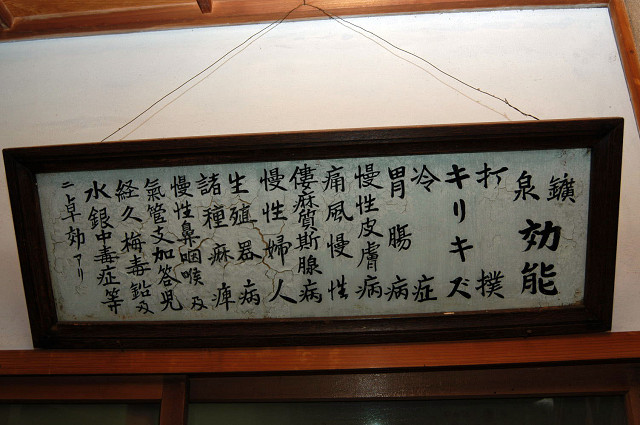 鑛泉
効能
打撲
キリキズ
冷症
胃腸病
慢性皮膚病
痛風慢性
僂麻質斯腺病
慢性婦人
生殖器病
諸種麻痺
慢性鼻咽喉及
氣管支加答児
経久梅毒鉛及
水銀中毒症等
ニ卓効アリ